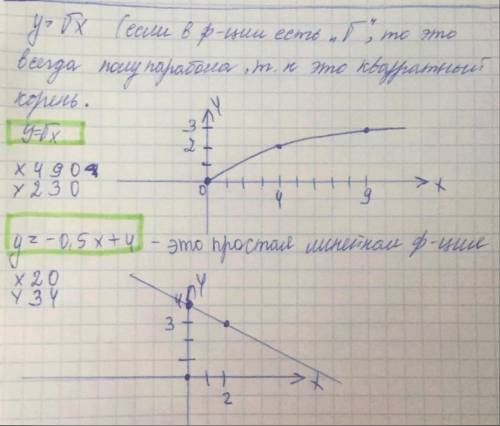 y=√x (если в ф-ции есть „√", то это
всегда полупарабола, т.к это квадратный
корень.
y=√x
x 4 9 0
y 2 3 0
Y
3
2
0
4
9
X
y = -0,5x+4 - это простая линейная ф-ция
x 2 0
y 3 4
Y
4
3
2
X